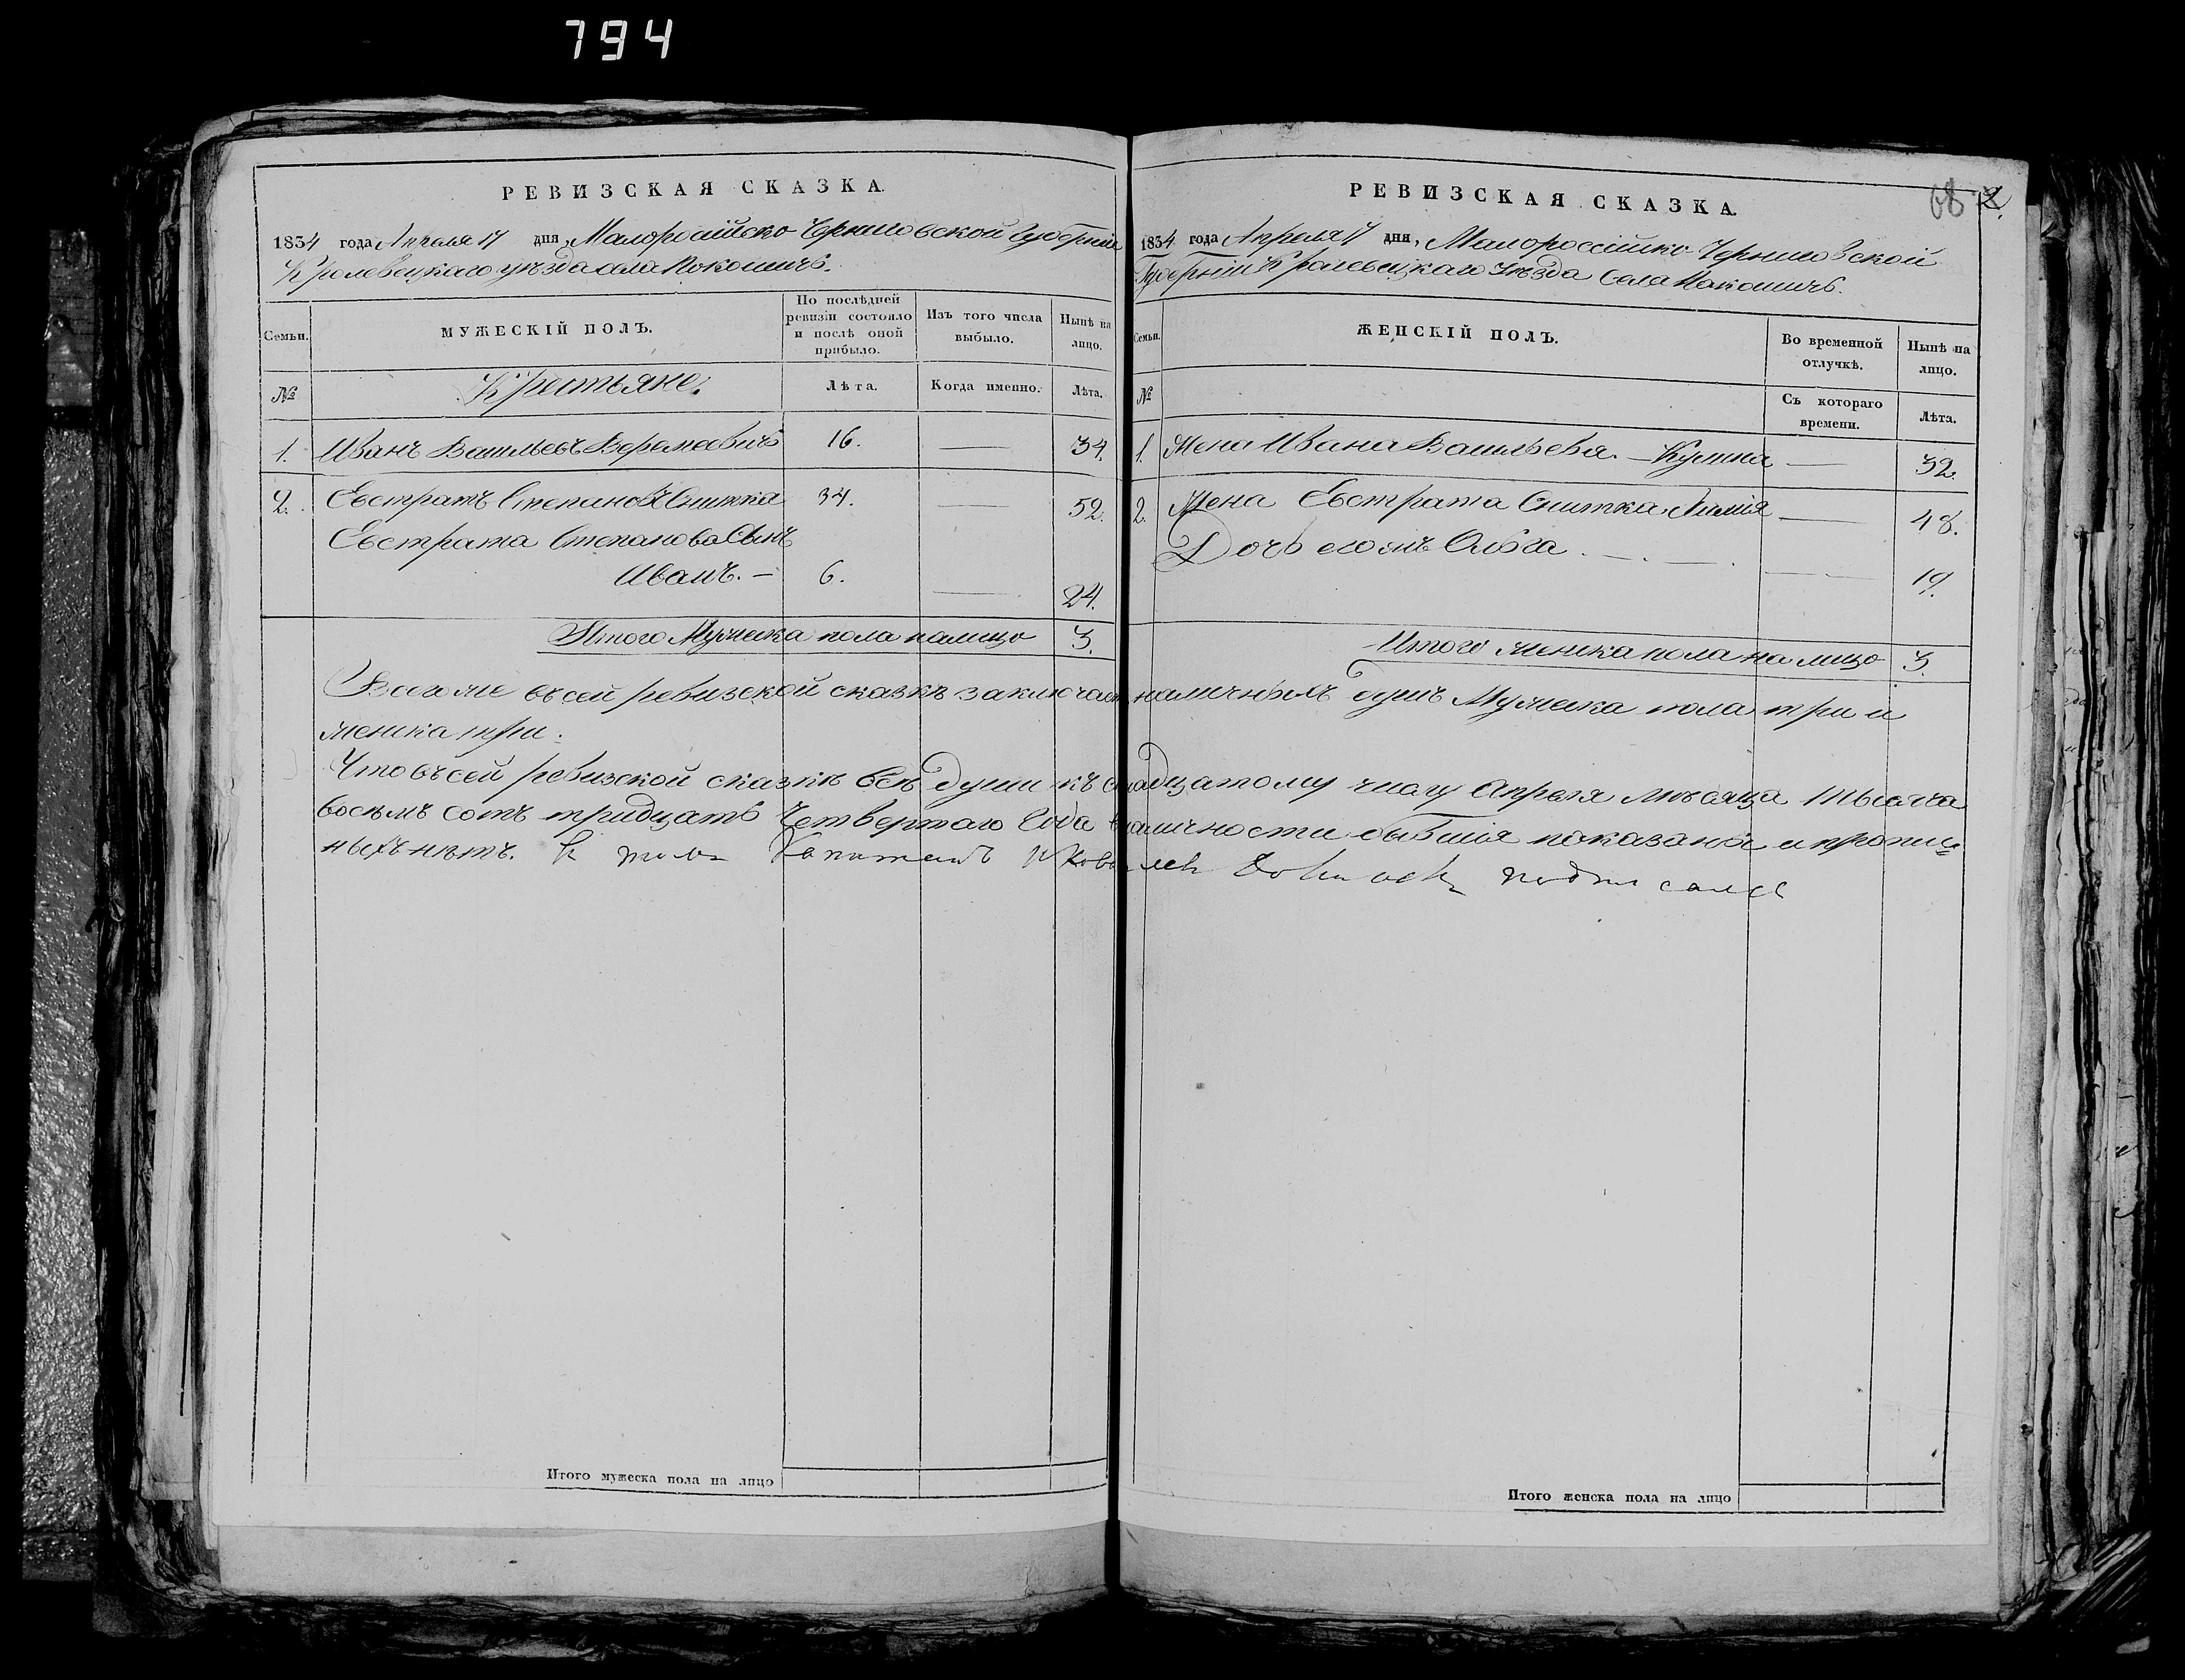 794
РЕВИЗСКАЯ СКАЗКА.
1834 года Апреля 17 дня, Малоросійско Черниговской Губерніи
Кролевецкаго уѣзда села Покошичь.
Семьи. МУЖЕСКІЙ ПОЛЪ. По послѣдней ревизіи состояло и послѣ оной прибыло. Изъ того числа выбыло. Нынѣ на лицо.
№ Крестьяне. Лѣта. Когда именно. Лѣта.
1. Иванъ Васильевъ 16. — 34.
2. Евстратъ Степановъ Снитка 34. — 52.
Евстрата Степанова Сынъ
Иванъ. — 6. — 24.
Итого Мужеска пола налицо 3.
68
РЕВИЗСКАЯ СКАЗКА.
1834 года Апреля 17 дня, Малоросзійско Черниговской
Губерніи Кролевецкаго Уѣзда Села Покошичь.
Семьи. ЖЕНСКІЙ ПОЛЪ. Во временной отлучкѣ. Нынѣ на лицо.
№ Съ котораго времени. Лѣта.
1. Жена Ивана Васильева. — Кулина — 32.
2. Жена Евстрата Снитка — 48.
Дочь его жъ Ольга. — 19.
Итого женска пола на лицо 3.
Всего же въ сей ревизской сказкѣ заключает наличныхъ душъ Мужеска пола три и
женска три.
Что въ сей ревизской сказкѣ всѣ души къ числу Апреля мѣсяца тысяча
восемъ сотъ тридцать Четвертаго Года въ наличности бывшія показаны и пропис=
ныхъ нѣтъ. К подписался
Итого мужеска пола на лицо
Итого женска пола на лицо